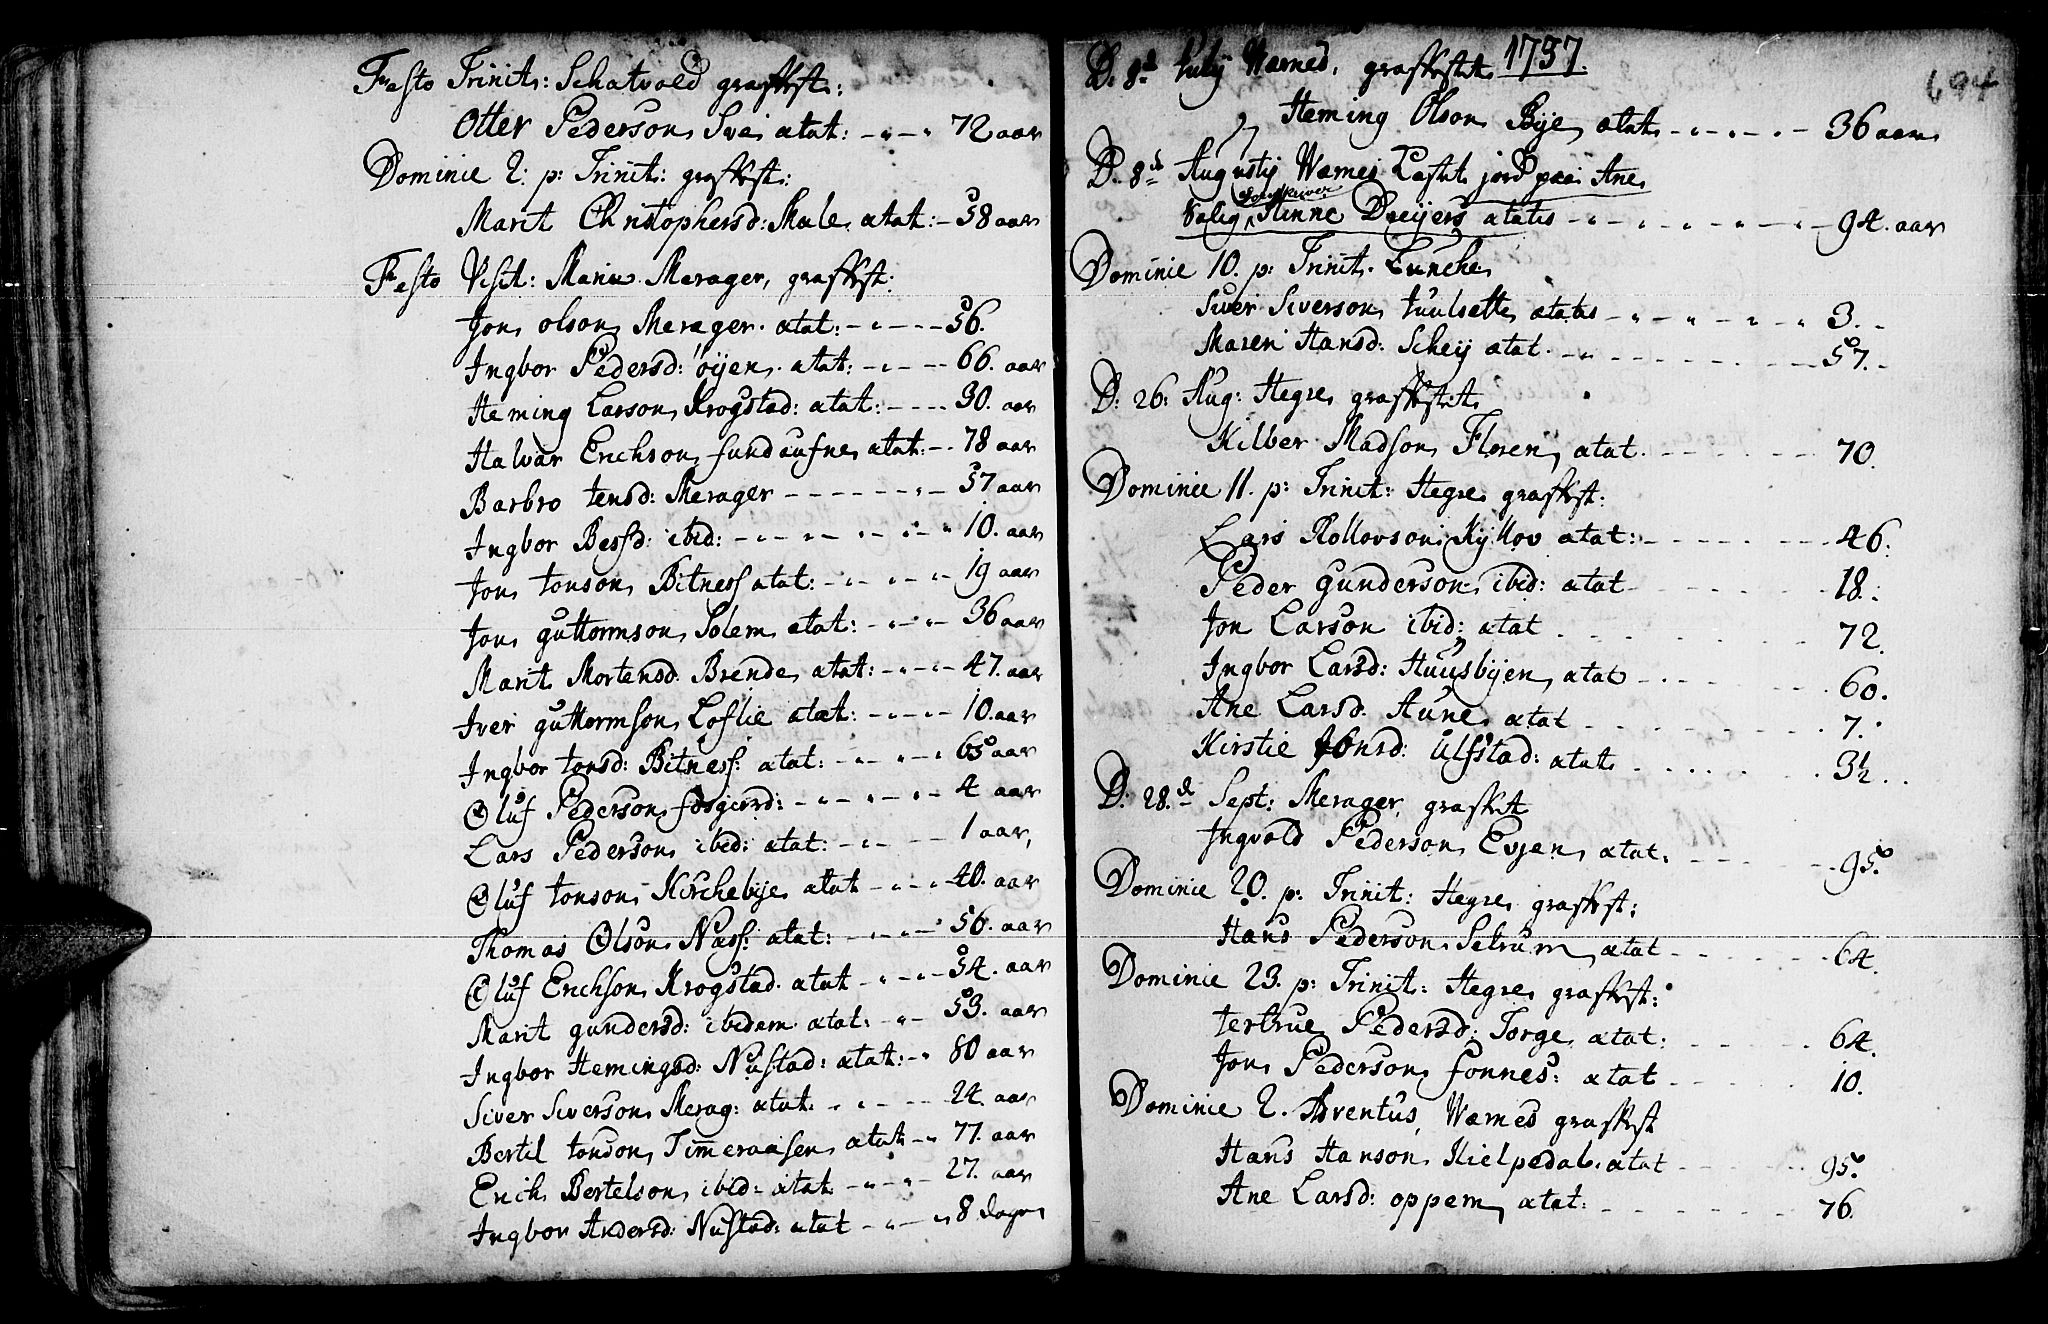 Festo Trinit: Schatvold grafkst:
Otter Pederson Sve atat: 72 aar
Dominie 2: p: Trinit: grafkst:
Marit Christophersd: Male atat: 58 aar
Festo Visit: Mariæ Merager, grafkst:
Jon olson Merager atat: 56.
Ingbor Pedersd: öijen atat: 66. aar
Heming Larson Krogstad: atat: 30. aar
Halvar Erichson fundaufne atat: 78 aar
Barbro Jensd: Merager 57 aar
Ingbor Bersd: ibid: 10. aar
Jon Jonson Bitness atat: 19 aar
Jon guttormson Solem atat: 36 aar
Marit Mortensd Brende atat: 47. aar
Iver guttormson Loflie atat: 10. aar
Ingbor Jonsd: Bitness: atat: 65 aar
Oluf Pederson fosgierd: 4 aar
Lars Pederson ibid: atat: 1 aar,
Oluf Jonson Kirchebye atat 40. aar
Thomas Olson Næss: atat: 56. aar
Oluf Erichson Krogstad atat 54. aar
Marit gundersd: ibidem atat: 53. aar
Ingbor Hemingsd: Nustad: atat: 80 aar
Siver Siverson Merag: atat. 24. aar
Bertel Jonson Timeraasen atat 77. aar
Erich Bertelson ibid: atat 27. aar
Ingbor Andersd: Nustad: atat 8 dage
D. 8d July Wærnes, grafkstet 1737.
694
Heming Olson Bye atat 36 aar
D. 8d Augustij Wærnes Kastet jord paa Ane
Salig Minne Dreijers atatis 94. aar
Dominie 10. p: Trinit. Lunche
Siver Siverson tuulsette atatis 3.
Maren Hansd: Scheij atat. 57.
D: 26: Aug: Hegre grafkstet
Kilber Madson Floren atat. 70.
Dominie 11. p: Trinit: Hegre grafkst:
Lars Rollovson Kyllov atat: 46.
Peder gunderson ibid: atat 18.
Jon Larson ibid: atat 72.
Ingbor Larsd: Huusbyen atat 60.
Ane Larsd. Aune atat 7.
Kirstie Jonsd: Ulfstad: atat 3½.
D. 28.d Sept: Merager grafkst
Ingvold Pederson Evjen atat: 95.
Dominie 20. p: Trinit: Hegre grafkst:
Hans Pederson Setrum atat 64.
Dominie 23. p: Trinit: Hegre grafkst:
Jertrue Pedersd: Torge atat: 64.
Jon Pederson fonnes: atat 10.
Dominie 2. Adventus, Wærnes grafkst
Hans Hanson Kielpedal atat 95.
Ane Larsd: oppem atat: 76.